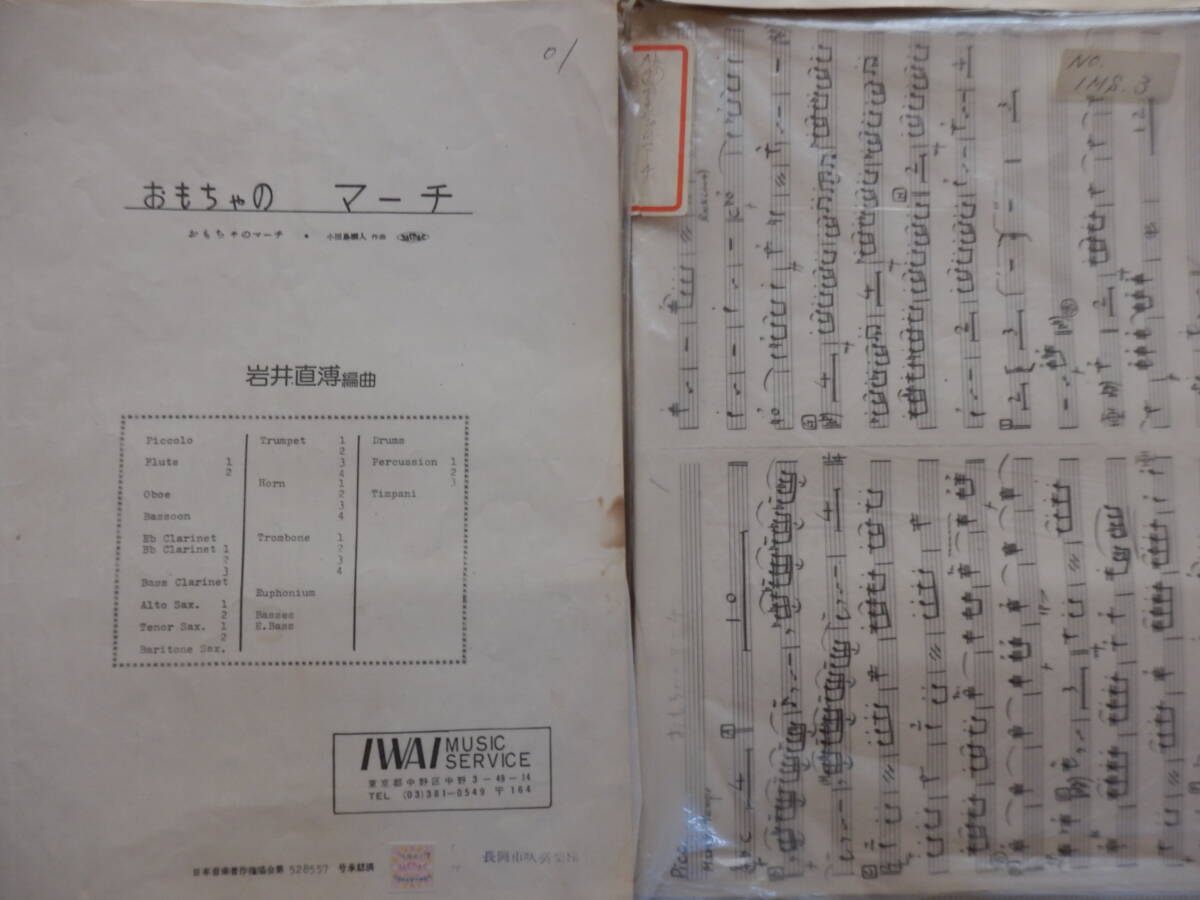 01
おもちゃの マーチ
おもちゃのマーチ ・ 小田島樹人 作曲
岩井直溥編曲
Piccolo
Flute 1
2
Oboe
Bassoon
Eb Clarinet
Bb Clarinet 1
2
3
Bass Clarinet
Alto Sax. 1
2
Tenor Sax. 1
2
Baritone Sax.
Trumpet 1
2
3
4
Horn 1
2
3
4
Trombone 1
2
3
4
Euphonium
Basses
E.Bass
Drums
Percussion 1
2
3
Timpani
IWAI MUSIC
SERVICE
東京都中野区中野3-49-14
TEL (03)381-0549 〒164
日本音楽著作権協会第 528557 号承認済
長岡市吹奏楽団
NO.
IMS. 3
Picc.